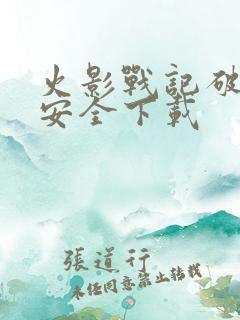 火影戰記破
安全下載
張道行
未經同意禁止轉載